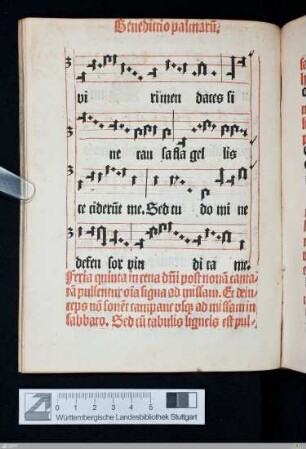 Benedictio palmarū.
vi ri men daces si
ne cau sa fla gel lis
te ciderūt me. Sed tu do mi ne
defen sor vin di ca me.
Feria quinta in cena dn̄i post nonā canta-
tā pulsentur oīa signa ad missam. Et dein-
ceps nō sonēt campane vsqȝ ad missam in
sabbato. Sed cū tabulis ligneis est pul-
0 1 2 3 4 5 6 7 8 9 10
Württembergische Landesbibliothek Stuttgart